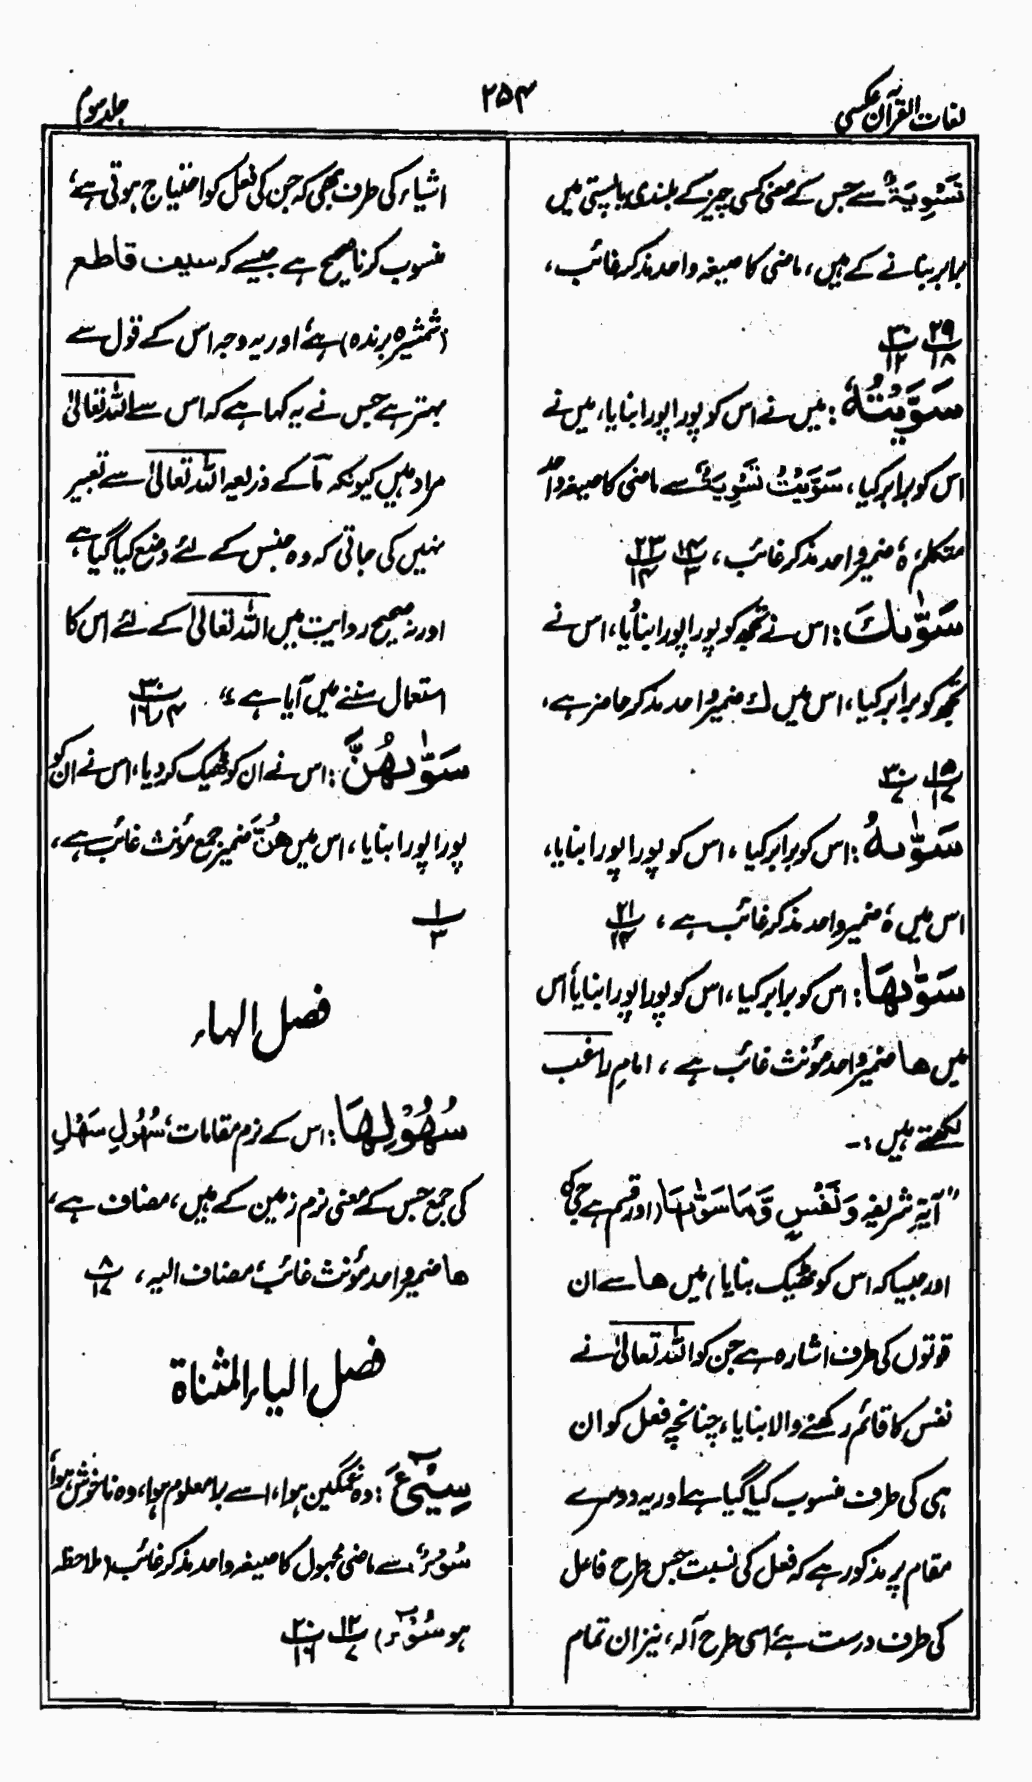 لغات القرآن عکسی
۲۵۴
جلد سوم
تَسْوِیَةٌ سے جس کے معنی کسی چیز کے بلندی یا پستی میں
برابر بنانے کے ہیں، ماضی کا صیغہ واحد مذکر غائب،
۲۹/۱۸ ۳۰/۱۲
سَوَّیْتُهٗ: میں نے اس کو پورا پورا بنایا، میں نے
اس کو برابر کیا، سَوَّیْتُ تَسْوِیَةٌ سے ماضی کا صیغہ واحد
متکلم، ہٗ ضمیر واحد مذکر غائب، ۱۴/۳ ۲۳/۱۴
سَوّٰىكَ: اس نے تجھ کو پورا پورا بنایا، اس نے
تجھ کو برابر کیا، اس میں ك ضمیر واحد مذکر حاضر ہے،
۱۵/۱۷ ۳۰/۷
سَوّٰىهُ: اس کو برابر کیا، اس کو پورا پورا بنایا،
اس میں ہٗ ضمیر واحد مذکر غائب ہے، ۲۱/۱۴
سَوّٰىهَا: اس کو برابر کیا، اس کو پورا پورا بنایا، اس
میں ھا ضمیر واحد مؤنث غائب ہے، امام راغب
لکھتے ہیں :-
"آیۂ شریفہ وَنَفْسٍ وَّمَا سَوّٰىهَا (اور قسم ہے جی کی
اور جیسا کہ اس کو ٹھیک بنایا) میں ھا سے ان
قوتوں کی طرف اشارہ ہے جن کو اللہ تعالیٰ نے
نفس کا قائم رکھنے والا بنایا، چنانچہ فعل کو ان
ہی کی طرف منسوب کیا گیا ہے اور یہ دوسرے
مقام پر مذکور ہے کہ فعل کی نسبت جس طرح فاعل
کی طرف درست ہے، اسی طرح آلہ، نیز ان تمام
اشیاء کی طرف بھی کہ جن کی فعل کو احتیاج ہوتی ہے،
منسوب کرنا صحیح ہے جیسے کہ سیف قاطع
(شمشیر برندہ) ہے، اور یہ وجہ اس کے قول سے
بہتر ہے جس نے یہ کہا ہے کہ اس سے اللہ تعالیٰ
مراد ہیں کیونکہ مَا کے ذریعہ اللہ تعالیٰ سے تعبیر
نہیں کی جاتی کہ وہ جنس کے لئے وضع کیا گیا ہے
اور نہ صحیح روایت میں اللہ تعالیٰ کے لئے اس کا
استعمال سننے میں آیا ہے" ۳۰/۱۶،۴
سَوّٰىهُنَّ: اس نے ان کو ٹھیک کر دیا، اس نے ان کو
پورا پورا بنایا، اس میں هُنَّ ضمیر جمع مؤنث غائب ہے،
۱/۳
فصل الہاء
سُهُوْلِهَا: اس کے نرم مقامات، سُهُوْلٌ سَهْلٌ
کی جمع جس کے معنی نرم زمین کے ہیں، مضاف ہے،
ھا ضمیر واحد مؤنث غائب، مضاف الیہ، ۸/۱۷
فصل الیاء المثناة
سِیْٓءَ: وہ غمگین ہوا، اسے برا معلوم ہوا، وہ ناخوش ہوا،
سُوْءٌ سے ماضی مجہول کا صیغہ واحد مذکر غائب (ملاحظہ
ہو سُوْٓء) ۱۲/۷ ۲۰/۱۶